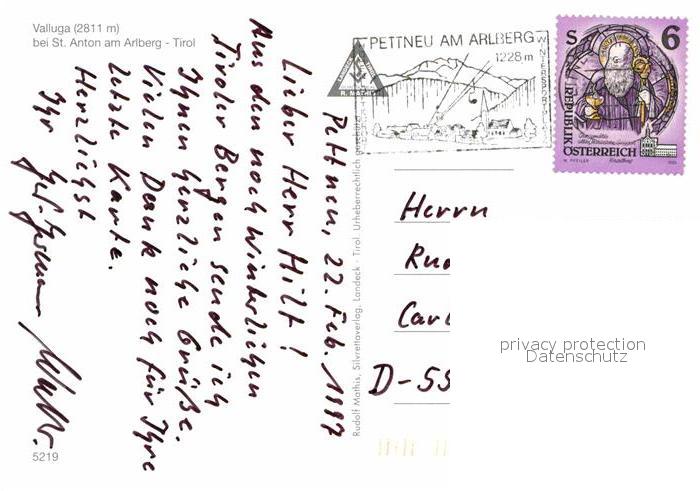 Valluga (2811 m)
bei St. Anton am Arlberg - Tirol
Pettneu, 22. Feb. 1997
Lieber Herr Hilt!
Aus den noch winterlichen
Tiroler Bergen sende ich
Ihnen herzliche Grüße.
Vielen Dank noch für Ihre
letzte Karte.
Herzlichst
Ihr
5219
Rudolf Mathis, Silvrettaverlag, Landeck - Tirol. Urheberrechtlich geschützt
PETTNEU AM ARLBERG
1228 m
WINTERSPORT
S 6
REPUBLIK
ÖSTERREICH
Herrn
Ru
Car
D-55
privacy protection
Datenschutz